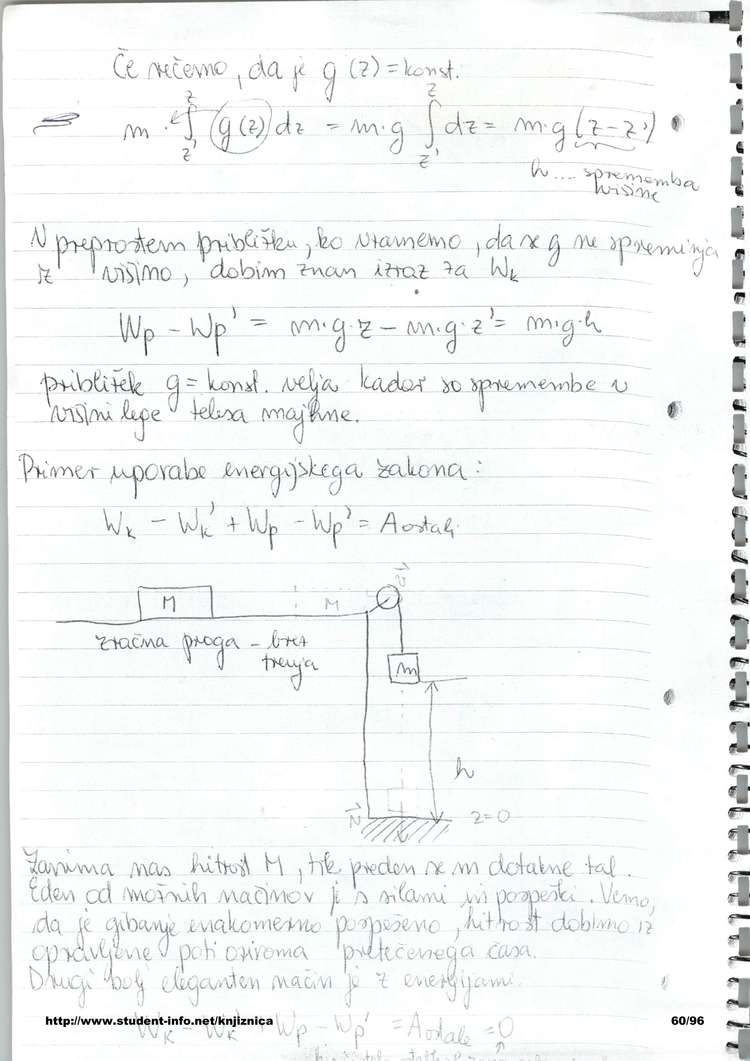 Če rečemo, da je g(z) = konst.
m · ∫_{z'}^{z} g(z) dz = m·g ∫_{z'}^{z} dz = m·g (z-z')
h .... sprememba
višine
V preprostem približku, ko vzamemo, da se g ne spreminja
z višino, dobim znan izraz za Wk
Wp - Wp' = m·g·z - m·g·z' = m·g·h
približek g = konst. velja kadar so spremembe v
višini lege telesa majhne.
Primer uporabe energijskega zakona:
Wk - Wk' + Wp - Wp' = Aostali
M
M
zračna proga - brez
trenja
m
h
z=0
Zanima nas hitrost M, tik preden se m dotakne tal.
Eden od možnih načinov je s silami in pospeški. Vemo,
da je gibanje enakomerno pospešeno, hitrost dobimo iz
opravljene poti oziroma pretečenega časa.
Drugi bolj eleganten način je z energijami.
Wk - Wk' + Wp - Wp' = Aostale = 0
http://www.student-info.net/knjiznica
60/96